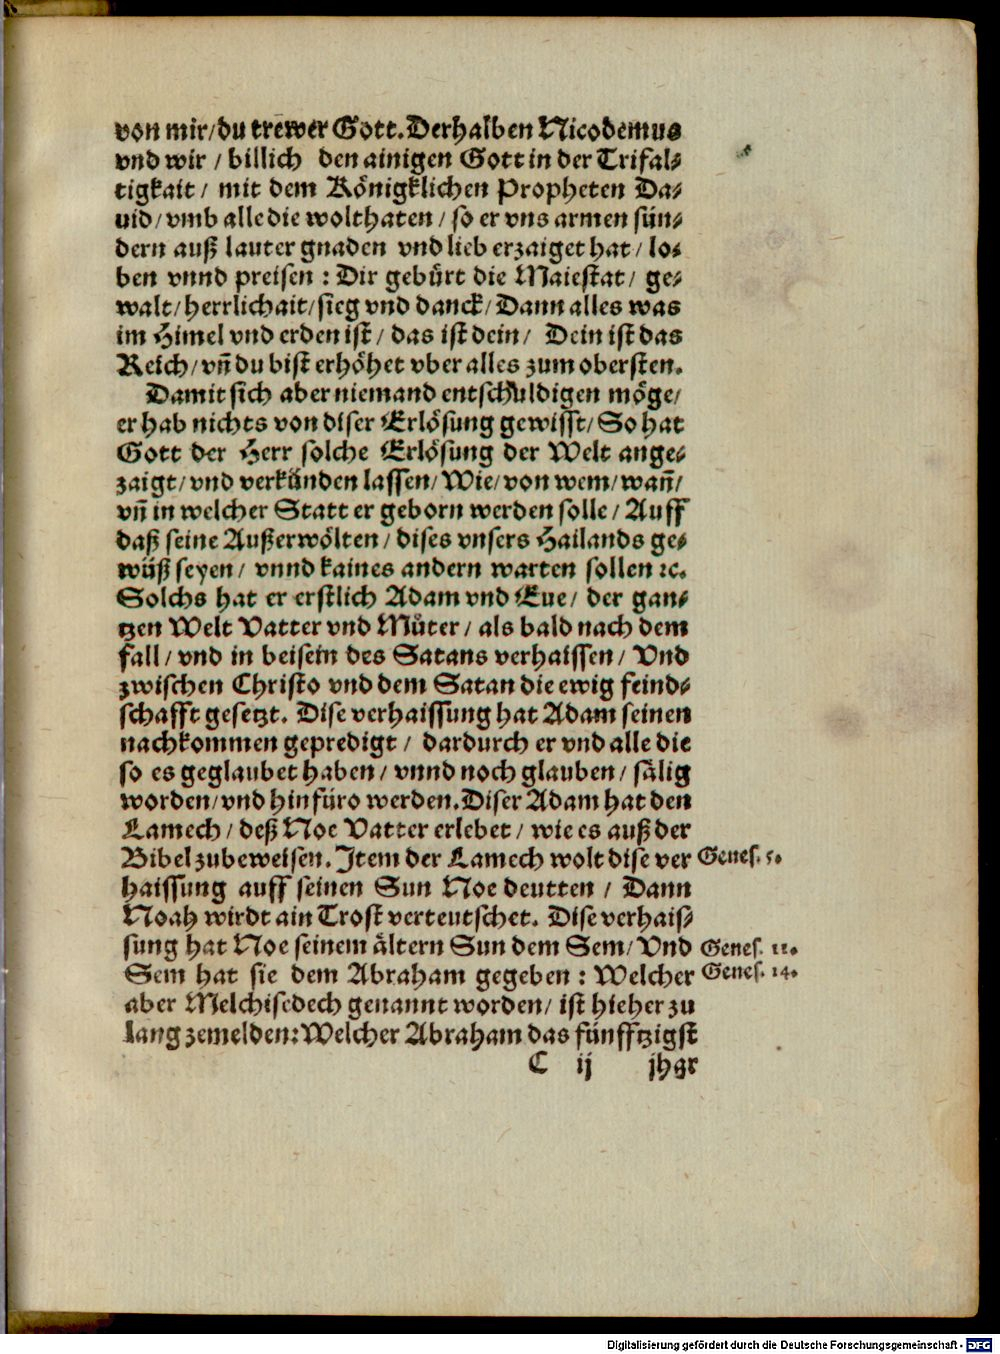 von mir/ du trewer Gott. Derhalben Nicodemus
vnd wir / billich den ainigen Gott in der Trifal⸗
tigkait / mit dem Königklichen Propheten Da⸗
uid/ vmb alle die wolthaten / so er vns armen sün⸗
dern auß lauter gnaden vnd lieb erzaiget hat / lo⸗
ben vnnd preisen : Dir gebürt die Maiestat / ge⸗
walt/ herrlichait/ sieg vnd danck/ Dann alles was
im Himel vnd erden ist / das ist dein / Dein ist das
Reich/ vñ du bist erhöhet vber alles zum obersten.
Damit sich aber niemand entschuldigen möge/
er hab nichts von diser Erlösung gewisst/ So hat
Gott der Herr solche Erlösung der Welt ange⸗
zaigt / vnd verkünden lassen/ Wie/ von wem/ wañ/
vñ in welcher Statt er geborn werden solle / Auff
daß seine Außerwölten / dises vnsers Hailands ge⸗
wüß seyen / vnnd kaines andern warten sollen ꝛc.
Solchs hat er erstlich Adam vnd Eue / der gan⸗
tzen Welt Vatter vnd Müter / als bald nach dem
fall / vnd in beisein des Satans verhaissen / Vnd
zwischen Christo vnd dem Satan die ewig feind⸗
schafft gesetzt. Dise verhaissung hat Adam seinen
nachkommen gepredigt / dardurch er vnd alle die
so es geglaubet haben / vnnd noch glauben / sälig
worden/ vnd hinfüro werden. Diser Adam hat den
Lamech / deß Noe Vatter erlebet / wie es auß der
Bibel zubeweisen. Item der Lamech wolt dise ver Genes. 5.
haissung auff seinen Sun Noe deutten / Dann
Noah wirdt ain Trost verteutschet. Dise verhais⸗
sung hat Noe seinem ältern Sun dem Sem/ Vnd Genes. 11.
Sem hat sie dem Abraham gegeben : Welcher Genes. 14.
aber Melchisedech genannt worden / ist hieher zu
lang zemelden: Welcher Abraham das fünfftzigst
C ij jhar
Digitalisierung gefördert durch die Deutsche Forschungsgemeinschaft - DFG